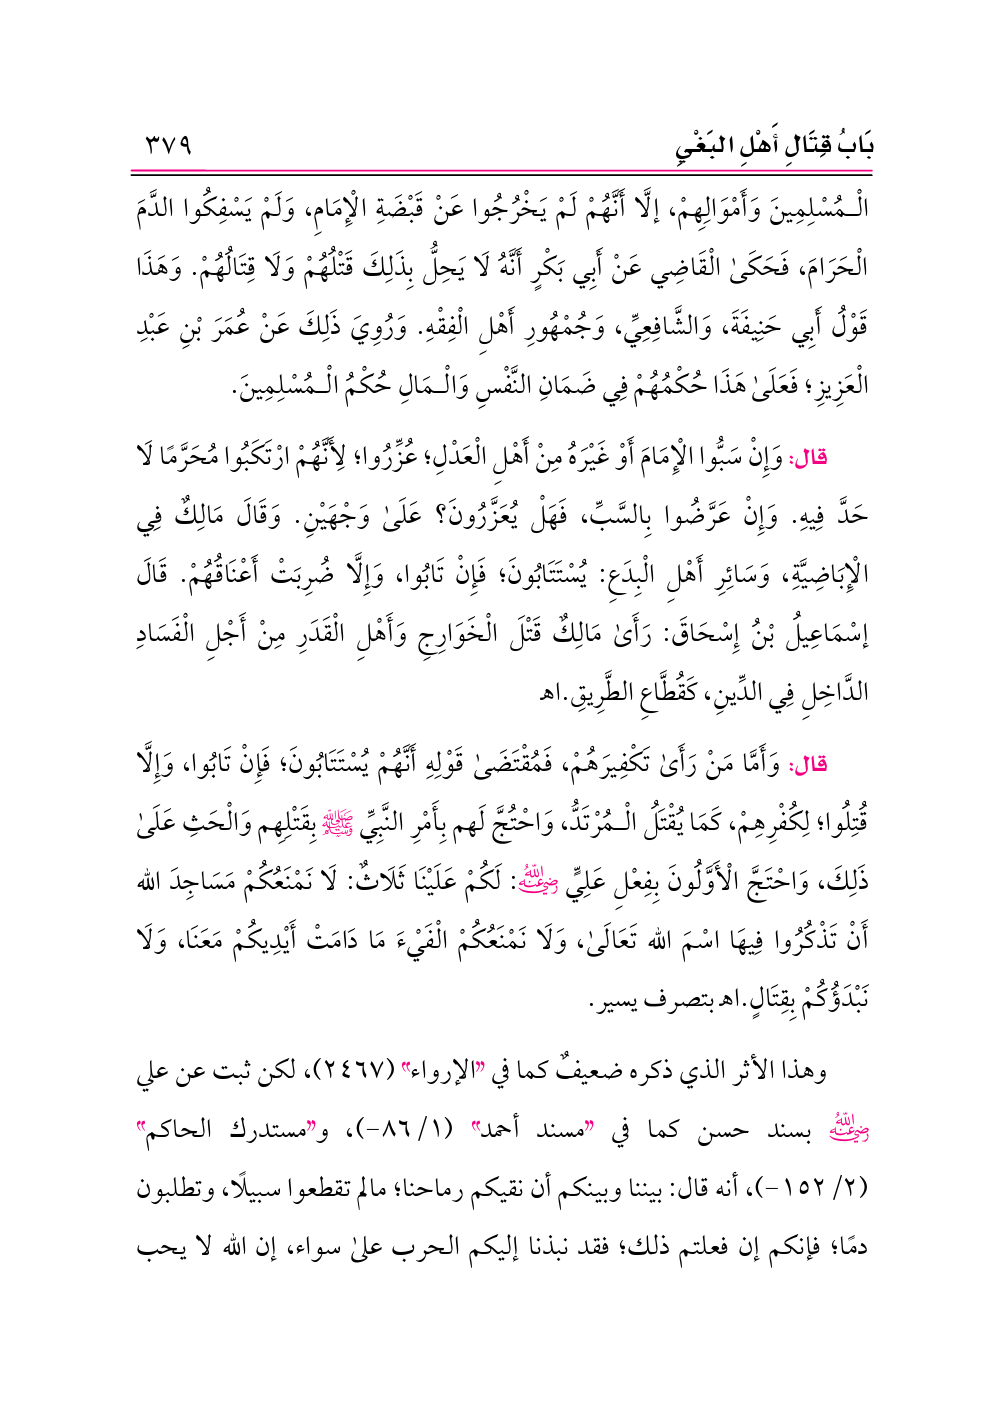 بَابُ قِتَالِ أَهْلِ البَغْيِ ٣٧٩
الْـمُسْلِمِينَ وَأَمْوَالِهِمْ، إلَّا أَنَّهُمْ لَمْ يَخْرُجُوا عَنْ قَبْضَةِ الْإِمَامِ، وَلَمْ يَسْفِكُوا الدَّمَ
الْحَرَامَ، فَحَكَىٰ الْقَاضِي عَنْ أَبِي بَكْرٍ أَنَّهُ لَا يَحِلُّ بِذَلِكَ قَتْلُهُمْ وَلَا قِتَالُهُمْ. وَهَذَا
قَوْلُ أَبِي حَنِيفَةَ، وَالشَّافِعِيِّ، وَجُمْهُورِ أَهْلِ الْفِقْهِ. وَرُوِيَ ذَلِكَ عَنْ عُمَرَ بْنِ عَبْدِ
الْعَزِيزِ؛ فَعَلَىٰ هَذَا حُكْمُهُمْ فِي ضَمَانِ النَّفْسِ وَالْـمَالِ حُكْمُ الْـمُسْلِمِينَ.
قال: وَإِنْ سَبُّوا الْإِمَامَ أَوْ غَيْرَهُ مِنْ أَهْلِ الْعَدْلِ؛ عُزِّرُوا؛ لِأَنَّهُمْ ارْتَكَبُوا مُحَرَّمًا لَا
حَدَّ فِيهِ. وَإِنْ عَرَّضُوا بِالسَّبِّ، فَهَلْ يُعَزَّرُونَ؟ عَلَىٰ وَجْهَيْنِ. وَقَالَ مَالِكٌ فِي
الْإِبَاضِيَّةِ، وَسَائِرِ أَهْلِ الْبِدَعِ: يُسْتَتَابُونَ؛ فَإِنْ تَابُوا، وَإِلَّا ضُرِبَتْ أَعْنَاقُهُمْ. قَالَ
إسْمَاعِيلُ بْنُ إِسْحَاقَ: رَأَىٰ مَالِكٌ قَتْلَ الْخَوَارِجِ وَأَهْلِ الْقَدَرِ مِنْ أَجْلِ الْفَسَادِ
الدَّاخِلِ فِي الدِّينِ، كَقُطَّاعِ الطَّرِيقِ.اهـ
قال: وَأَمَّا مَنْ رَأَىٰ تَكْفِيرَهُمْ، فَمُقْتَضَىٰ قَوْلِهِ أَنَّهُمْ يُسْتَتَابُونَ؛ فَإِنْ تَابُوا، وَإِلَّا
قُتِلُوا؛ لِكُفْرِهِمْ، كَمَا يُقْتَلُ الْـمُرْتَدُّ، وَاحْتُجَّ لَهم بِأَمْرِ النَّبِيِّ ﷺ بِقَتْلِهِم وَالْحَثِ عَلَىٰ
ذَلِكَ، وَاحْتَجَّ الْأَوَّلُونَ بِفِعْلِ عَلِيٍّ رضي الله عنه: لَكُمْ عَلَيْنَا ثَلَاثٌ: لَا نَمْنَعُكُمْ مَسَاجِدَ الله
أَنْ تَذْكُرُوا فِيهَا اسْمَ الله تَعَالَىٰ، وَلَا نَمْنَعُكُمْ الْفَيْءَ مَا دَامَتْ أَيْدِيكُمْ مَعَنَا، وَلَا
نَبْدَؤُكُمْ بِقِتَالٍ.اهـ بتصرف يسير.
وهذا الأثر الذي ذكره ضعيفٌ كما في "الإرواء" (٢٤٦٧)، لكن ثبت عن علي
رضي الله عنه بسند حسن كما في "مسند أحمد" (١/ ٨٦-)، و"مستدرك الحاكم"
(٢/ ١٥٢-)، أنه قال: بيننا وبينكم أن نقيكم رماحنا؛ مالم تقطعوا سبيلًا، وتطلبون
دمًا؛ فإنكم إن فعلتم ذلك؛ فقد نبذنا إليكم الحرب علىٰ سواء، إن الله لا يحب